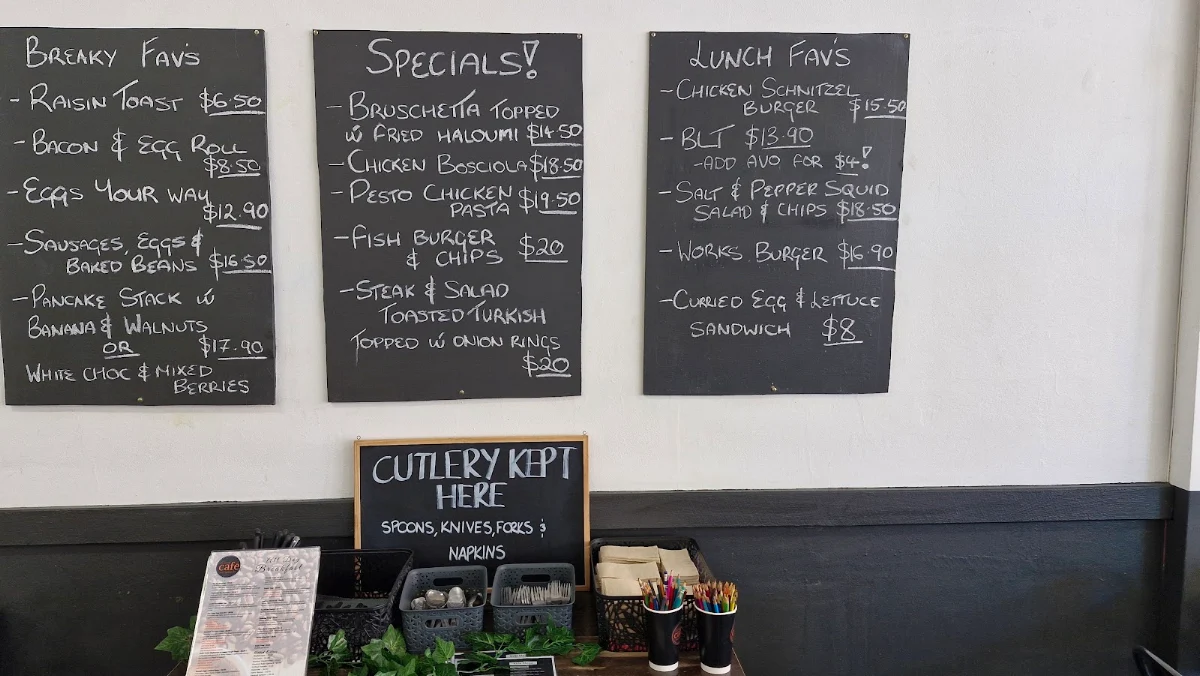 BREAKY FAV'S
- RAISIN TOAST $6.50
- BACON & EGG ROLL
$8.50
- EGGS YOUR WAY
$12.90
- SAUSAGES, EGGS &
BAKED BEANS $16.50
- PANCAKE STACK W
BANANA & WALNUTS
OR $17.90
WHITE CHOC & MIXED
BERRIES
SPECIALS!
- BRUSCHETTA TOPPED
W FRIED HALOUMI $14.50
- CHICKEN BOSCIOLA $18.50
- PESTO CHICKEN
PASTA $19.50
- FISH BURGER
& CHIPS $20
- STEAK & SALAD
TOASTED TURKISH
TOPPED W ONION RINGS
$20
LUNCH FAV'S
- CHICKEN SCHNITZEL
BURGER $15.50
- BLT $13.90
- ADD AVO FOR $4!
- SALT & PEPPER SQUID
SALAD & CHIPS $18.50
- WORKS BURGER $16.90
- CURRIED EGG & LETTUCE
SANDWICH $8
CUTLERY KEPT
HERE
SPOONS, KNIVES, FORKS &
NAPKINS
café
Breakfast